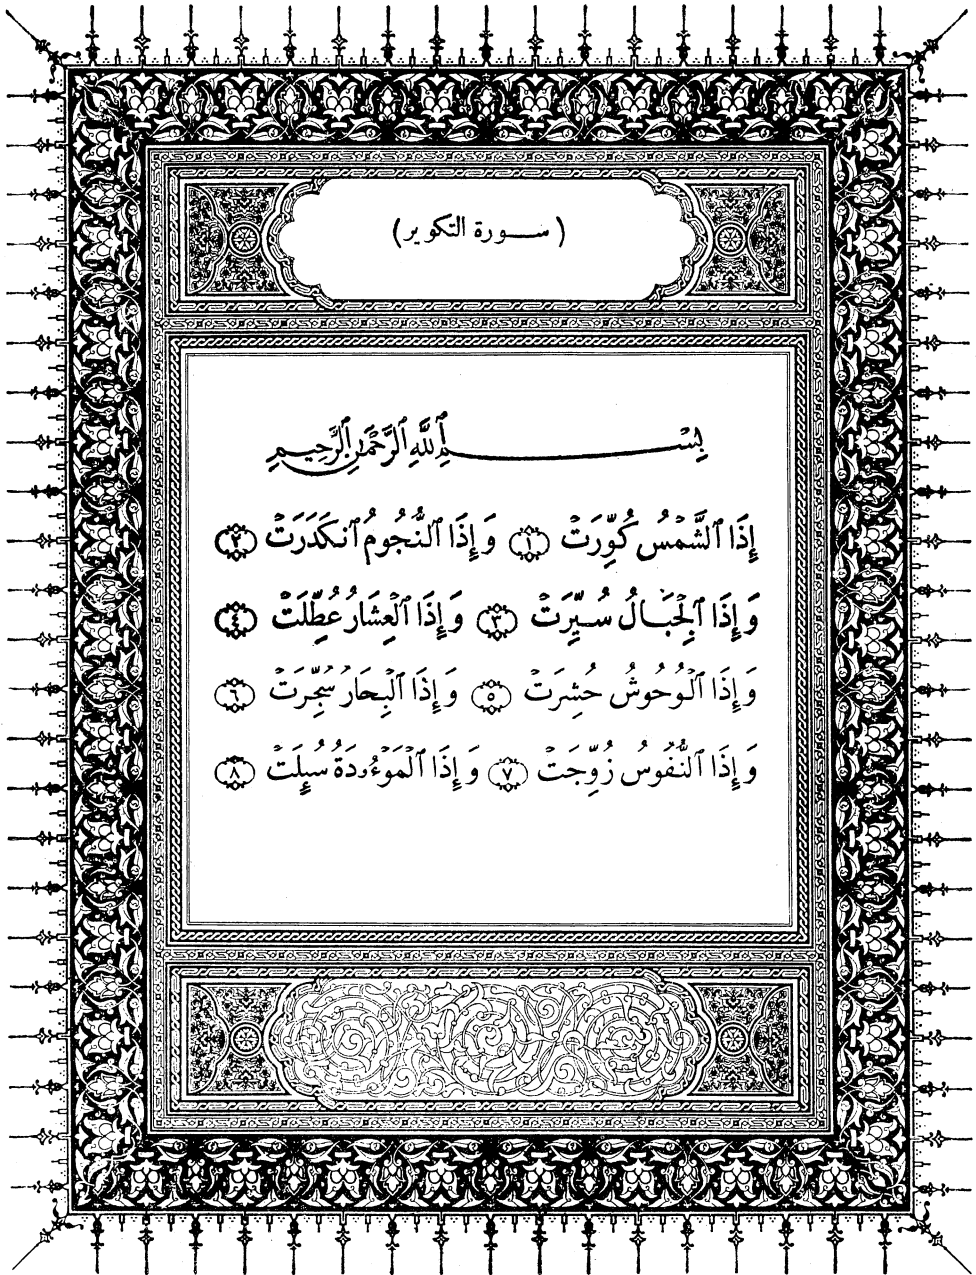 (ســورة التكوير)
بِسْــــــمِ ٱللَّهِ ٱلرَّحْمَٰنِ ٱلرَّحِيمِ
إِذَا ٱلشَّمْسُ كُوِّرَتْ ١ وَإِذَا ٱلنُّجُومُ ٱنكَدَرَتْ ٢
وَإِذَا ٱلْجِبَالُ سُيِّرَتْ ٣ وَإِذَا ٱلْعِشَارُ عُطِّلَتْ ٤
وَإِذَا ٱلْوُحُوشُ حُشِرَتْ ٥ وَإِذَا ٱلْبِحَارُ سُجِّرَتْ ٦
وَإِذَا ٱلنُّفُوسُ زُوِّجَتْ ٧ وَإِذَا ٱلْمَوْءُۥدَةُ سُئِلَتْ ٨